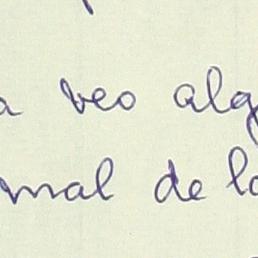 a veo alg
mal de lo